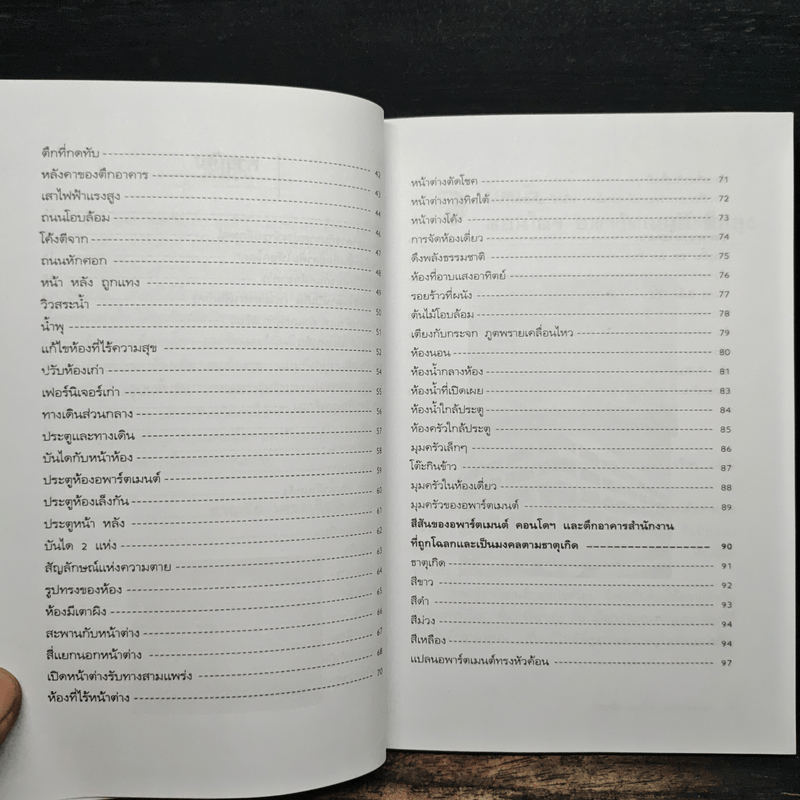 ตึกที่กดทับ 42
หลังคาของตึกอาคาร 43
เสาไฟฟ้าแรงสูง 44
ถนนโอบล้อม 46
โค้งตีจาก 47
ถนนหักศอก 48
หน้า หลัง ถูกแทง 49
วิวสระน้ำ 50
น้ำพุ 51
แก้ไขห้องที่ไร้ความสุข 52
ปรับห้องเก่า 54
เฟอร์นิเจอร์เก่า 55
ทางเดินส่วนกลาง 56
ประตูและทางเดิน 57
บันไดกับหน้าห้อง 58
ประตูห้องอพาร์ตเมนต์ 59
ประตูห้องเล็งกัน 60
ประตูหน้า หลัง 61
บันได 2 แห่ง 62
สัญลักษณ์แห่งความตาย 63
รูปทรงของห้อง 64
ห้องมีเตาผิง 65
สะพานกับหน้าต่าง 66
สี่แยกนอกหน้าต่าง 67
เปิดหน้าต่างรับทางสามแพร่ง 68
ห้องที่ไร้หน้าต่าง 70
หน้าต่างดัดโชค 71
หน้าต่างทางทิศใต้ 72
หน้าต่างโค้ง 73
การจัดห้องเดี่ยว 74
ดึงพลังธรรมชาติ 75
ห้องที่อาบแสงอาทิตย์ 76
รอยร้าวที่ผนัง 77
ต้นไม้โอบล้อม 78
เตียงกับกระจก ภูตพรายเคลื่อนไหว 79
ห้องนอน 80
ห้องน้ำกลางห้อง 81
ห้องน้ำที่เปิดเผย 83
ห้องน้ำใกล้ประตู 84
ห้องครัวใกล้ประตู 85
มุมครัวเล็กๆ 86
โต๊ะกินข้าว 87
มุมครัวในห้องเดี่ยว 88
มุมครัวของอพาร์ตเมนต์ 89
สีสันของอพาร์ตเมนต์ คอนโดฯ และตึกอาคารสำนักงาน
ที่ถูกโฉลกและเป็นมงคลตามธาตุเกิด 90
ธาตุเกิด 91
สีขาว 92
สีดำ 93
สีม่วง 94
สีเหลือง 94
แปลนอพาร์ตเมนต์ทรงหัวค้อน 97